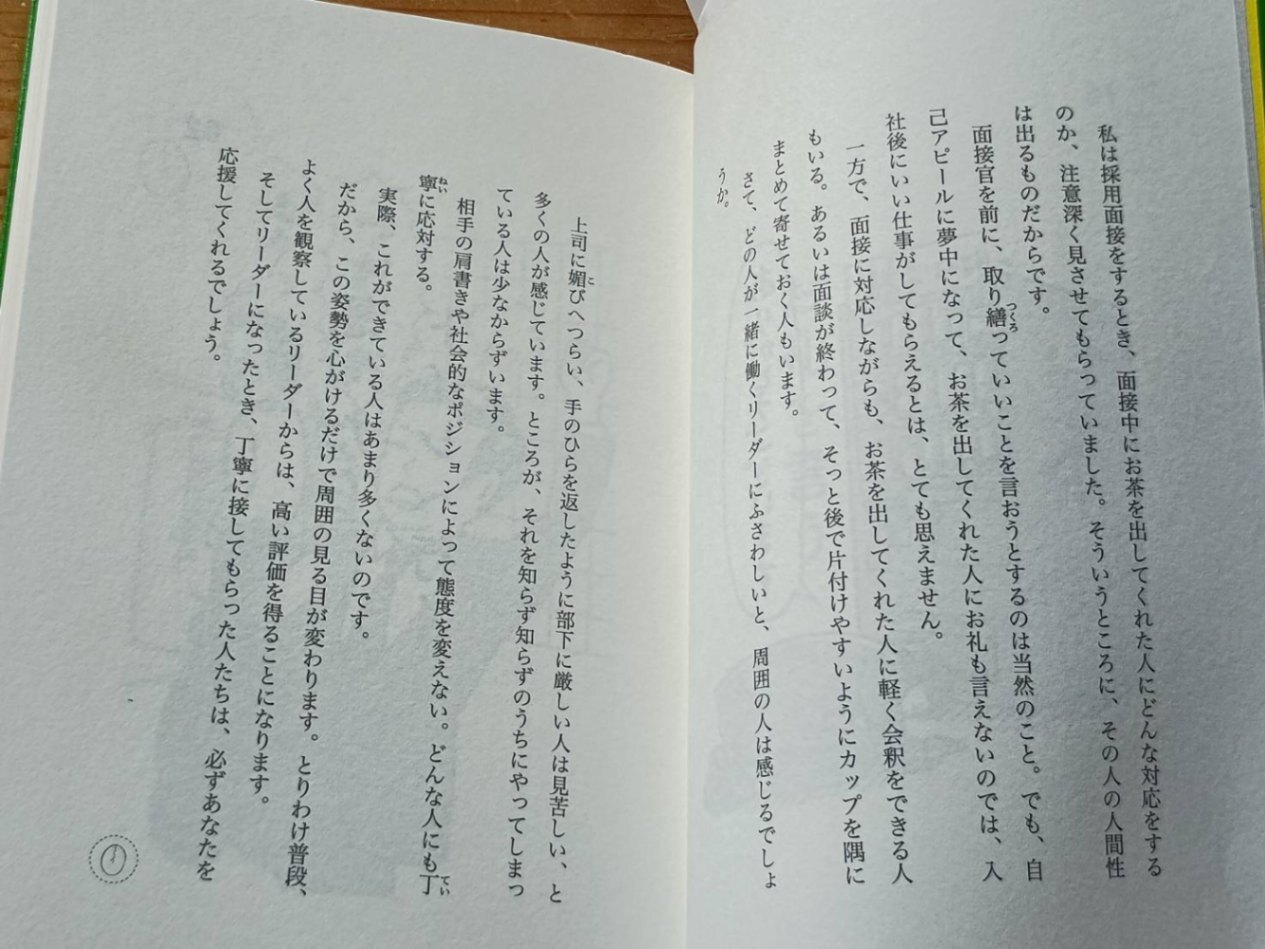 私は採用面接をするとき、面接中にお茶を出してくれた人にどんな対応をする
のか、注意深く見させてもらっていました。そういうところに、その人の人間性
は出るものだからです。
面接官を前に、取り繕っていいことを言おうとするのは当然のこと。でも、自
己アピールに夢中になって、お茶を出してくれた人にお礼も言えないのでは、入
社後にいい仕事がしてもらえるとは、とても思えません。
一方で、面接に対応しながらも、お茶を出してくれた人に軽く会釈をできる人
もいる。あるいは面談が終わって、そっと後で片付けやすいようにカップを隅に
まとめて寄せておく人もいます。
さて、どの人が一緒に働くリーダーにふさわしいと、周囲の人は感じるでしょ
うか。
上司に媚びへつらい、手のひらを返したように部下に厳しい人は見苦しい、と
多くの人が感じています。ところが、それを知らず知らずのうちにやってしまっ
ている人は少なからずいます。
相手の肩書きや社会的なポジションによって態度を変えない。どんな人にも丁
寧に応対する。
実際、これができている人はあまり多くないのです。
だから、この姿勢を心がけるだけで周囲の見る目が変わります。とりわけ普段、
よく人を観察しているリーダーからは、高い評価を得ることになります。
そしてリーダーになったとき、丁寧に接してもらった人たちは、必ずあなたを
応援してくれるでしょう。